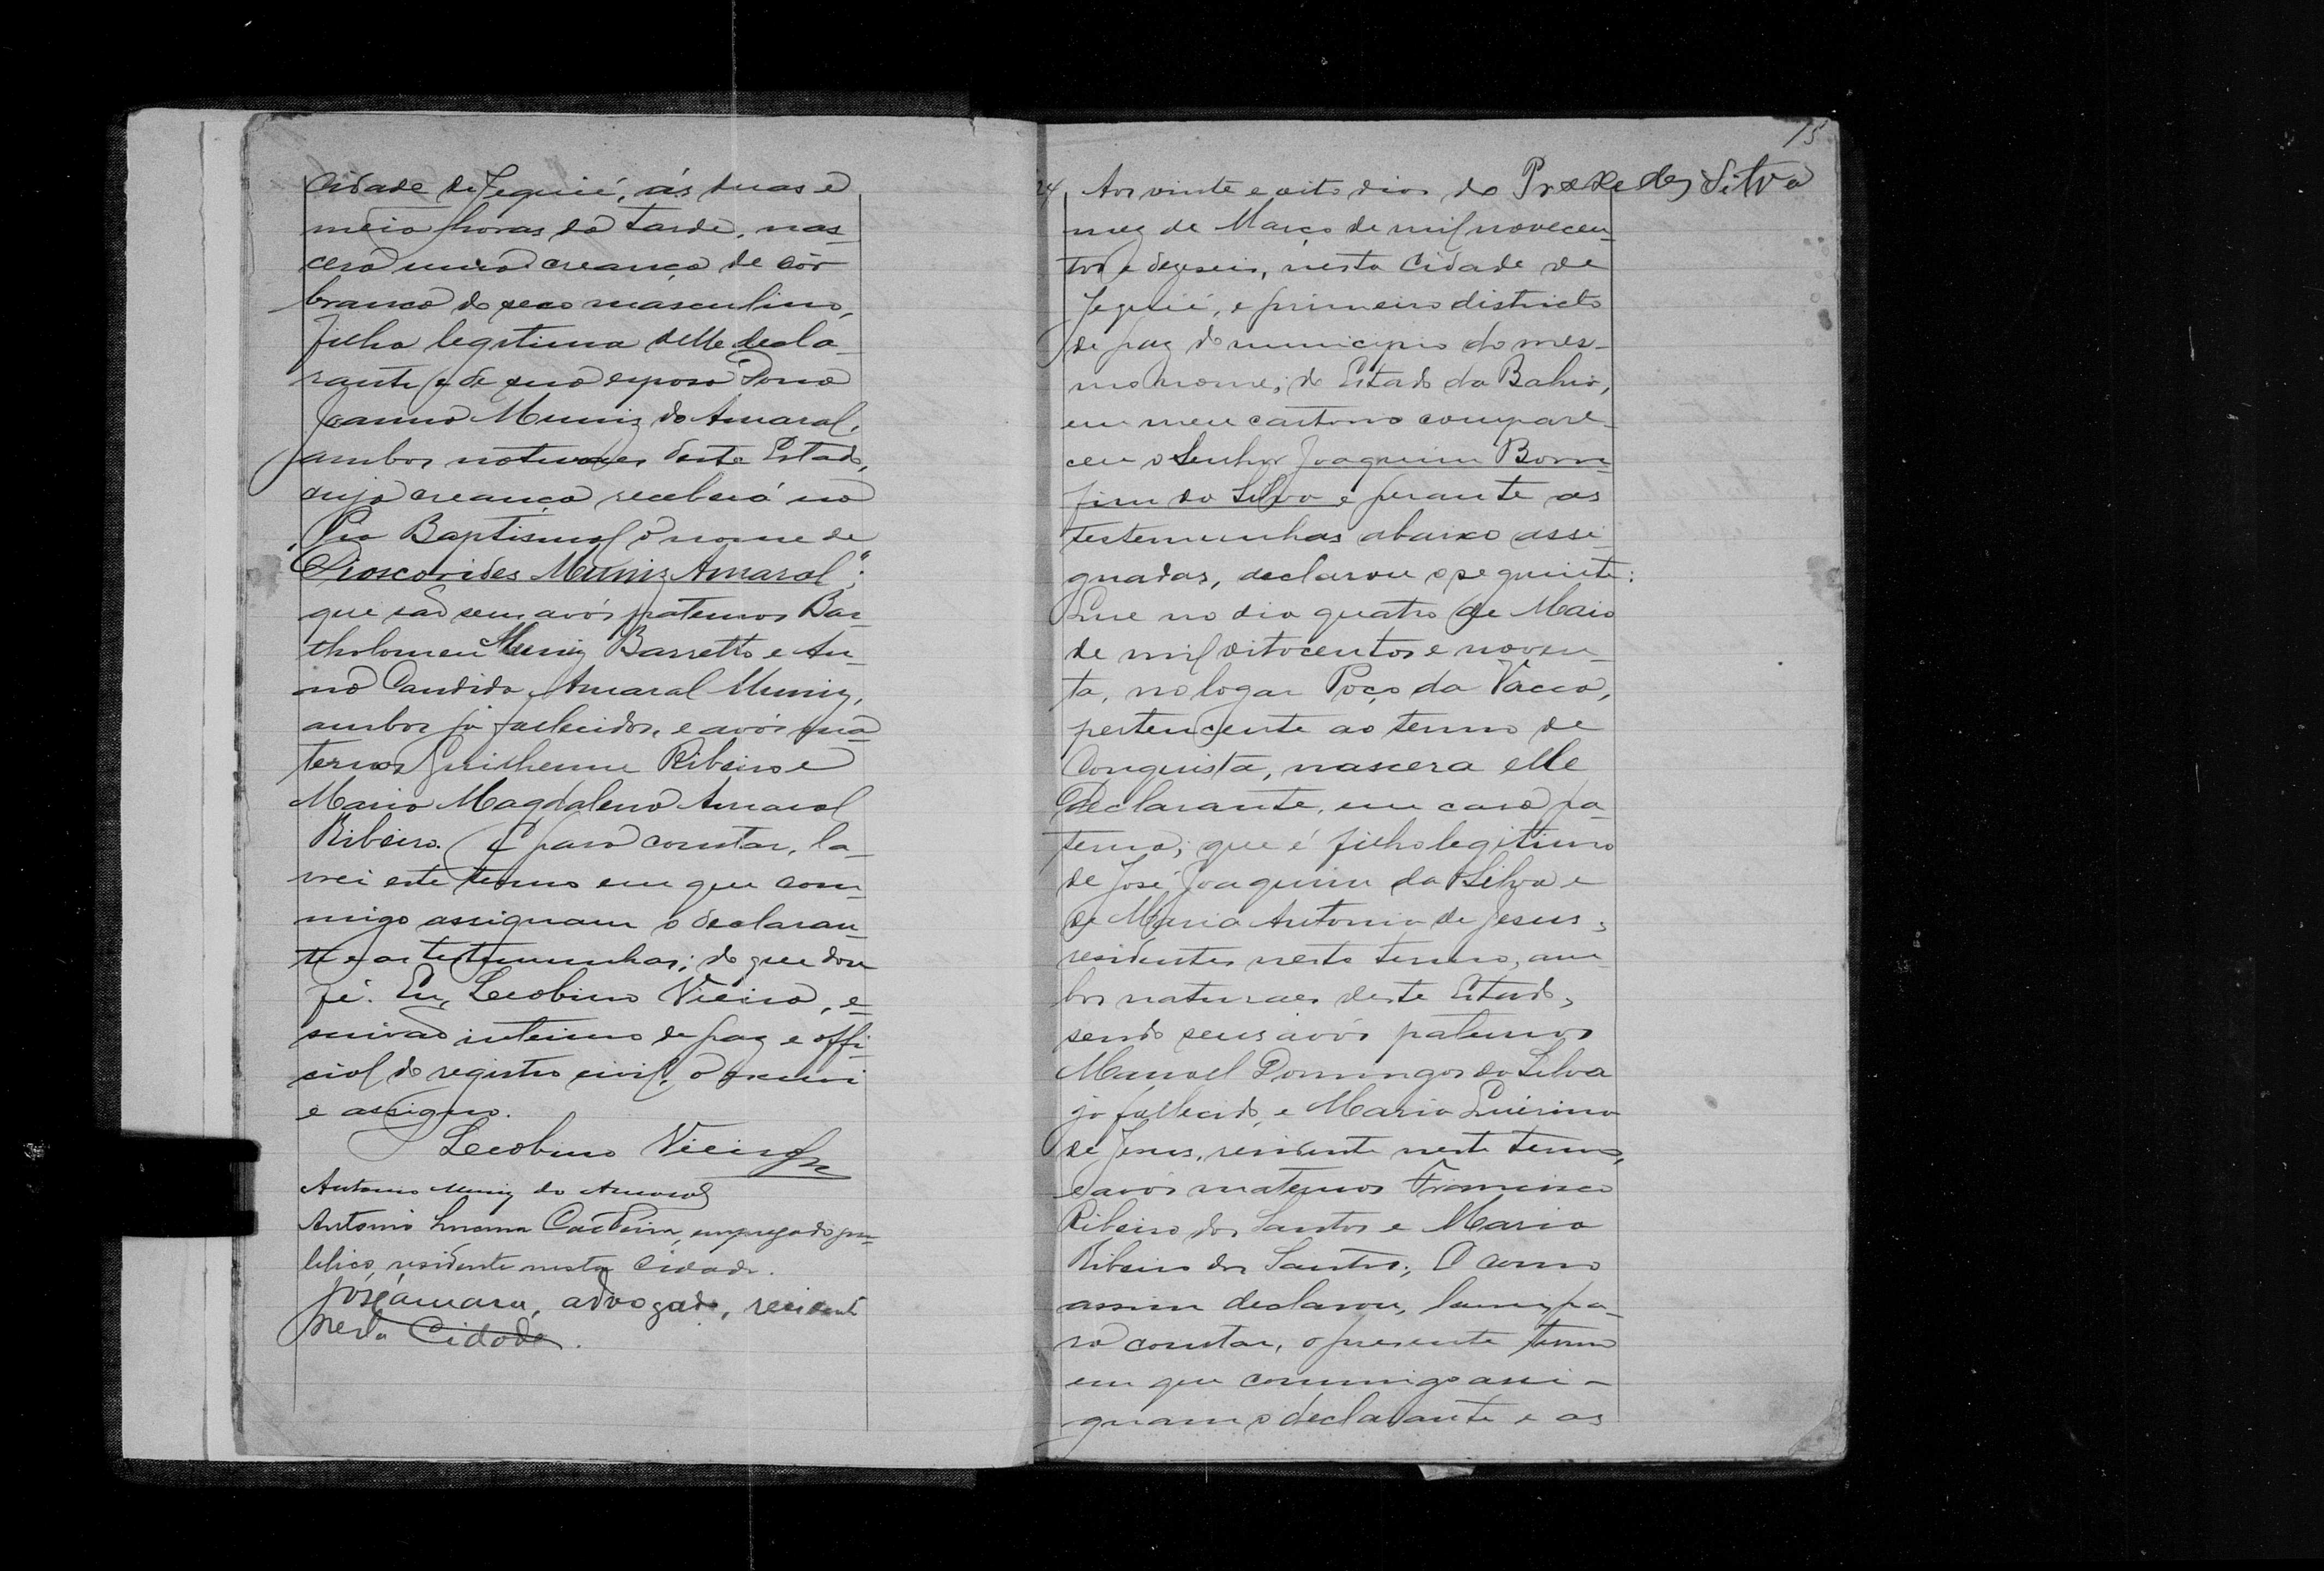 Cidade de Jequié, ás duas e
meia horas da tarde, nas-
cera uma creança de côr
branca do sexo masculino,
filho legitimo delle decla-
rante e de sua esposa Dona
Joanna Muniz do Amaral,
ambos naturaes deste Estado,
cuja creança receberá na
Pia Baptismal o nome de
"Dioscorides Muniz Amaral";
que são seus avós paternos Bar-
tholomeu Muniz Barretto e An-
na Candida Amaral Muniz,
ambos já fallecidos, e avós ma-
ternos Guilherme Ribeiro e
Maria Magdalena Amaral
Ribeiro. E para constar, la-
vrei este termo em que com-
migo assignam o declaran-
te e as testemunhas; do que dou
fé. Eu, Leobino Vieira, es-
crivão interino de paz e offi-
cial do registro civil, o escrevi
e assigno.
Leobino Vieira
Antonio Muniz do Amaral
Antonio empregado pu-
blico, residente nesta Cidade.
advogado, residente
nesta Cidade.
15
24 Aos vinte e oito dias do Praxedes Silva
mez de Março de mil novecen-
tos e dezeseis, nesta Cidade de
Jequié, e primeiro districto
de paz do municipio do mes-
mo nome, do Estado da Bahia,
em meu cartorio compare-
ceu o Senhor Joaquim Bom-
fim da Silva e perante as
testemunhas abaixo assi-
gnadas, declarou o seguinte:
Que no dia quatro de Maio
de mil oitocentos e noven-
ta, no logar Poço da Vacca,
pertencente ao termo de
Conquista, nascera elle
Declarante, em casa pa-
terna; que é filho legitimo
de José Joaquim da Silva e
de Maria Antonia de Jesus,
residentes neste termo, am-
bos naturaes deste Estado,
sendo seus avós paternos
Manoel Domingos da Silva
já fallecido, e Maria
de Jesus, residente neste termo,
e avós maternos Francisco
Ribeiro dos Santos e Maria
Ribeiro dos Santos; E como
assim declarou, lavrei, pa-
ra constar, o presente termo
em que commigo assi-
gnam o declarante e as